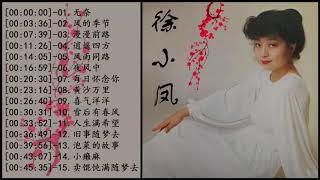 [00:00:00]-01. 无奈
[00:03:36]-02. 风的季节
[00:07:39]-03. 漫漫前路
[00:11:26]-04. 逍遥四方
[00:14:05]-05. 风雨同路
[00:16:59]-06. 夜风中
[00:20:30]-07. 每日怀念你
[00:23:18]-08. 黄沙万里
[00:26:40]-09. 喜气洋洋
[00:30:10]-10. 雪后有春风
[00:33:52]-11. 人生满希望
[00:37:48]-12. 旧事随梦去
[00:39:56]-13. 泡菜的故事
[00:43:07]-14. 小癞麻
[00:45:35]-15. 卖馄饨满随梦去
徐小凤